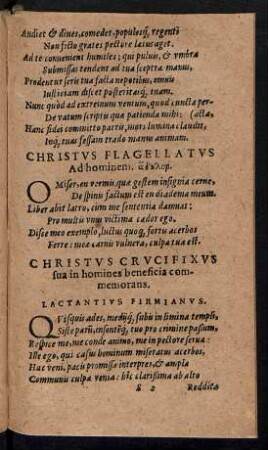 Audiet & diues, comedet, populosq́; regenti
Non ficto grates pectore lætus aget.
Ad te conuenient humiles; qui puluis, & vmbræ
Submissas tendent ad tua sceptra manus,
Prodentur serie tua facta nepotibus, omnis
Iustitiam discet posteritasq́; tuam.
Nunc quòd ad extremum ventum, quòd cuncta per-
De vatum scriptis quæ patienda mihi; (acta,
Hanc fidas committo patris, iuuat lumina claudit,
Inq́; tuas fessam trado manus animam.
CHRISTVS FLAGELLATVS
Ad hominem.
O Miser, en vermis quæ gestem insignia cerne,
De spinis factum est en diadema meum.
Liber abit latro, cùm me sententia damnat:
Pro multis vnus victima cædor ego.
Disce meo exemplo, luctus quoq́; fortis acerbos
Ferre: mea carnis vulnera, culpa tua est.
CHRISTVS CRVCIFIXVS
sua in homines beneficia com-
memorans.
LACTANTIVS FIRMIANVS.
QVisquis ades, mediiq́; subis in limina templi,
Siste parũ, insontẽq́; tuo pro crimine passum,
Respice me, me conde animo, me in pectore serua:
Ille ego, qui casus hominum miseratus acerbos,
Huc veni, pacis promissæ interpres, & ampla
Communis culpæ venia: hîc clarissima ab alto
& 2 Reddita